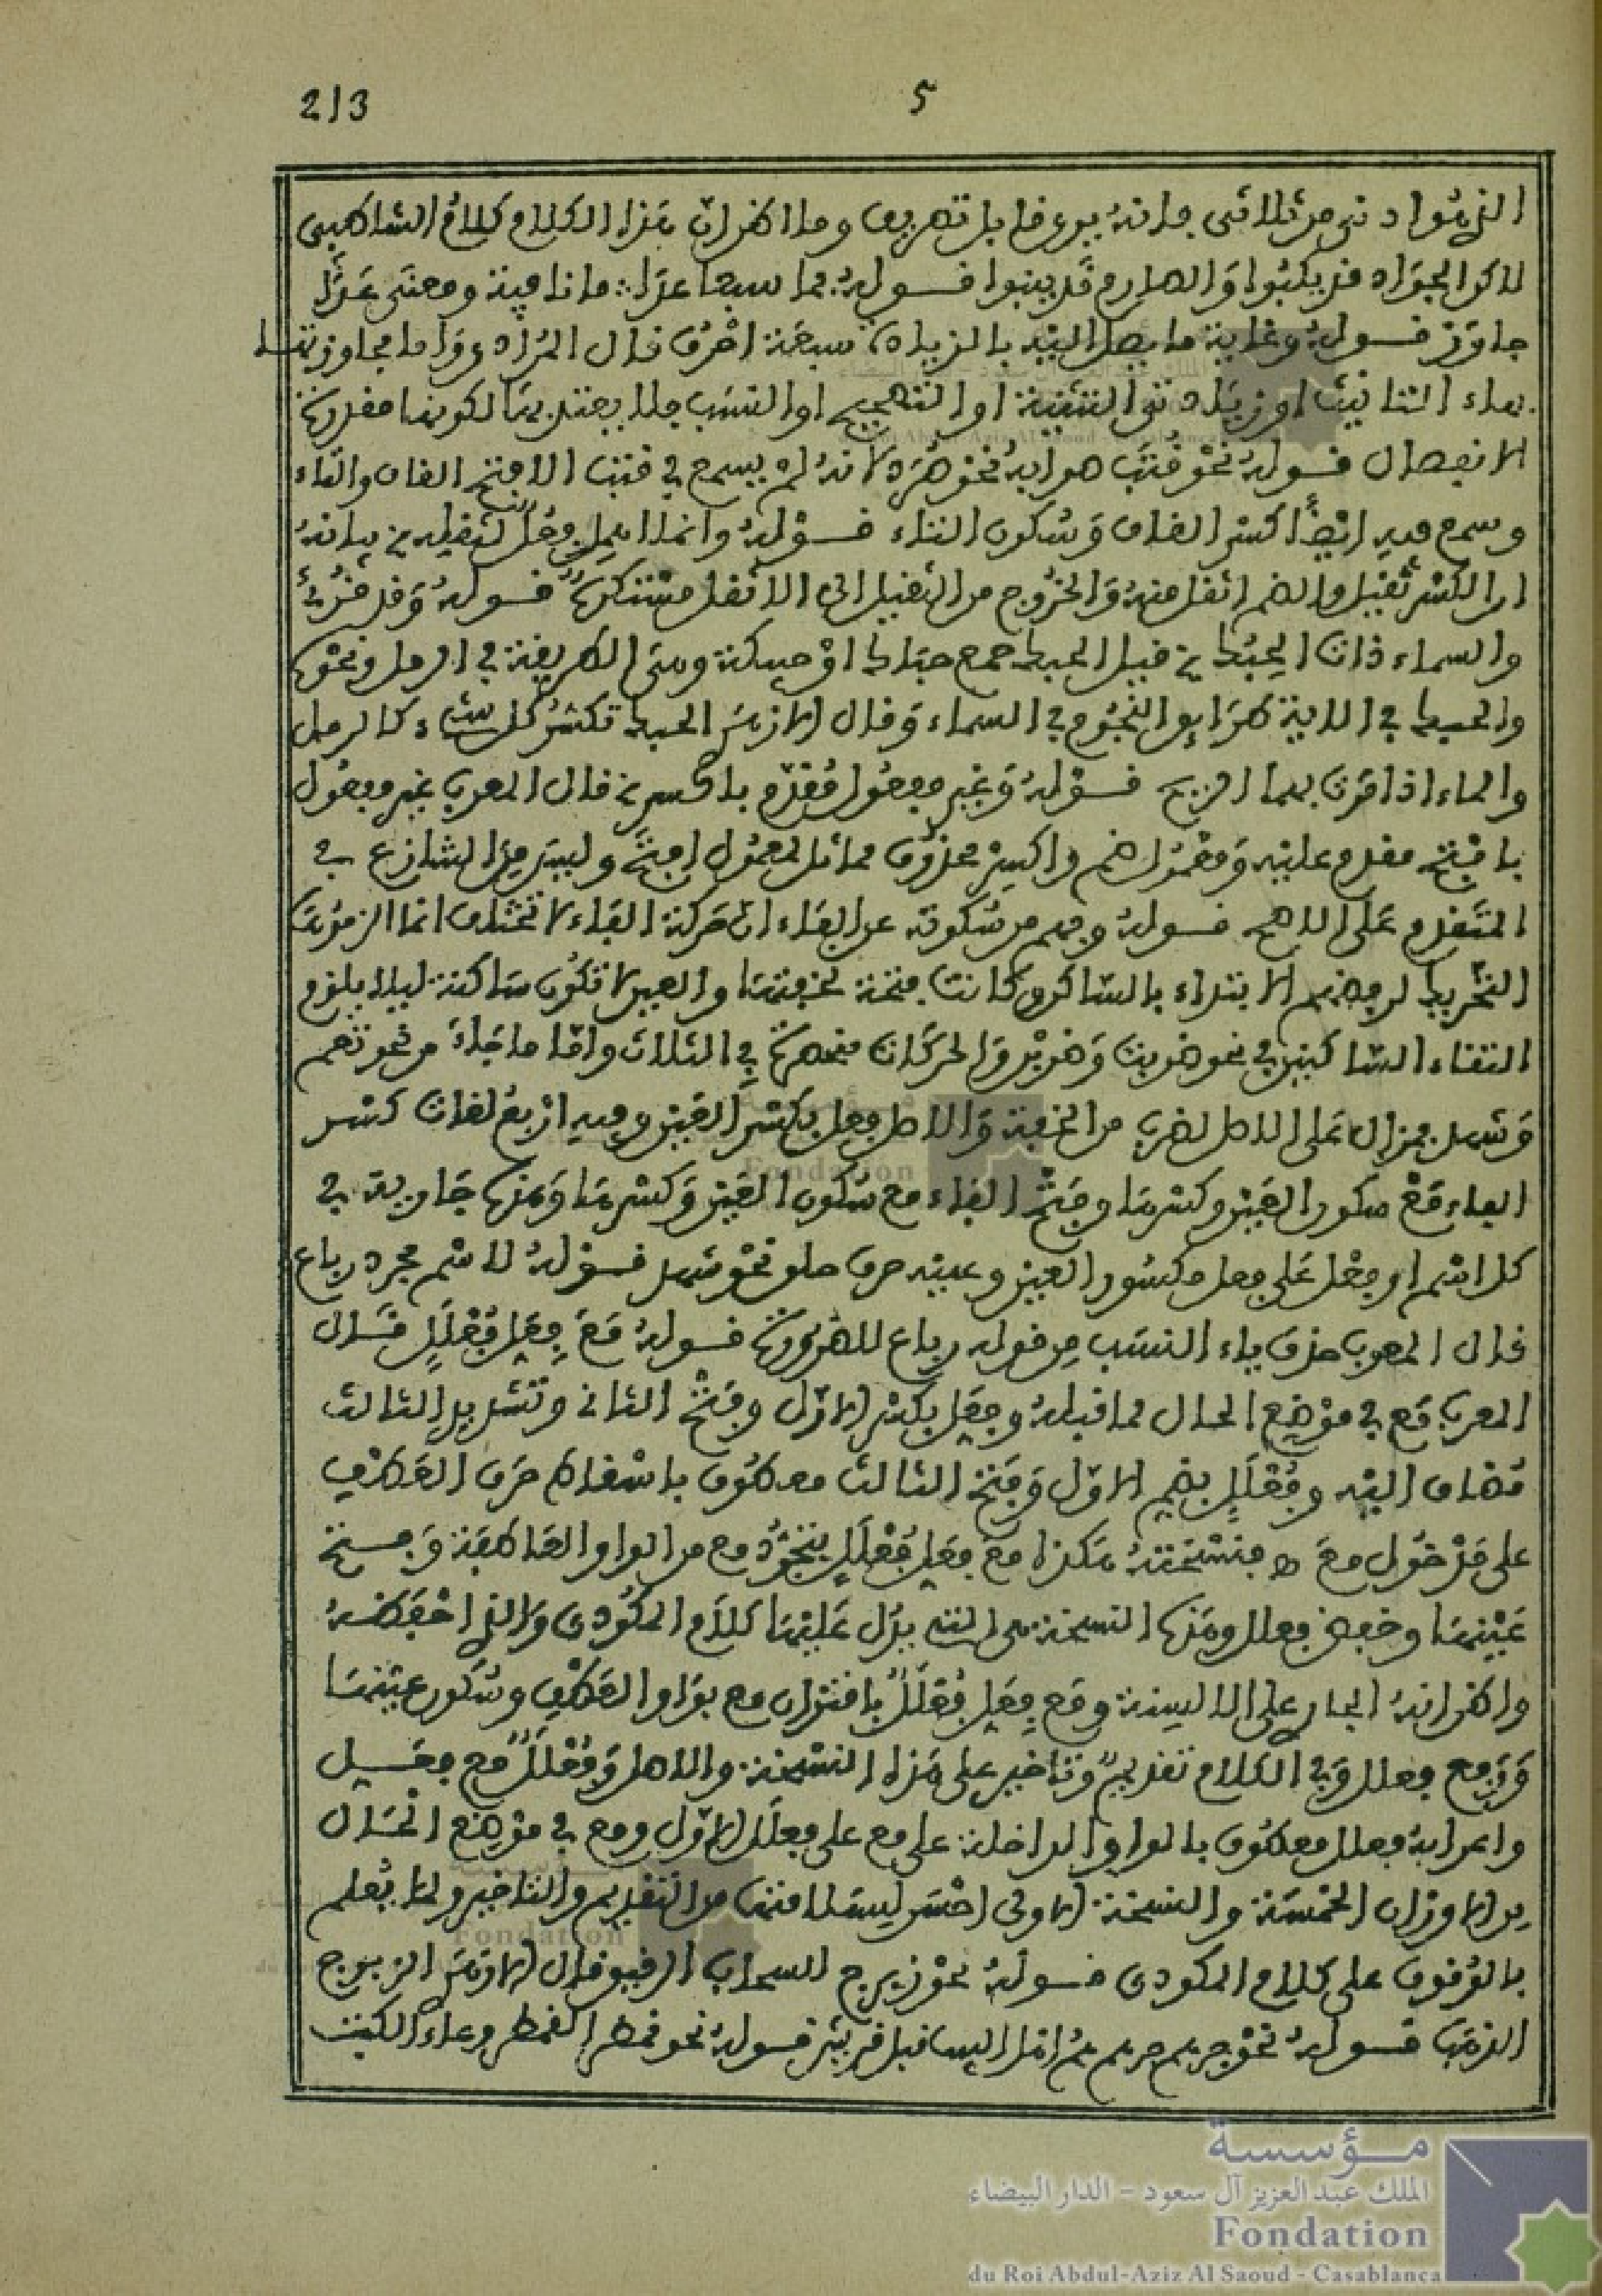 5
2/3
الذي هو ادنى من ثلاثي فانه يرى قابل تصريف وما اظن ان هذا الكلام كلام الشاطبي
لان الجواد قد يكبوا والصارم قد ينبوا قوله فما سبعا عدا: ما نافية ومعنى عدا
جاوز قوله وغاية ما يصل اليه بالزيادة سبعة احرف قال المرادي واما مجاوزتها
بهاء التانيث او زيادتي التثنية او التصحيح او النسب فلا يعتد بها لكونها مقدرة
الانفصال قوله نحو قتب صوابه نحو صرد لانه لم يسمع في قتب الا فتح القاف والتاء
وسمع فيه ايضا كسر القاف وسكون التاء قوله وانما اهمل فعل لثقله بانه
ان الكسر ثقيل والضم اثقل منه والخروج من الثقيل الى الاثقل مستكره قوله وقد قرئ
والسماء ذات الحبك قيل الحبك جمع حباك او حبيكة وهي الطريقة في الرمل ونحوه
والحبك في الاية طرائق النجوم في السماء وقال الازهري الحبك تكسر كل شيء كالرمل
والماء اذا مرت بهما الريح قوله وغير مفعول مقدم باكسر قال المعرب غير مفعول
بافتح مقدم عليه ومعمول ضم واكسر محذوف مماثل لمعمول افتح وليس من التنازع في
المتقدم على الاصح قوله وفهم من سكوته عن الفاء ان حركة الفاء لا تختلف انما الزموها
التحريك لرفضهم الابتداء بالساكن وكانت فتحة لخفتها والعين لا تكون ساكنة ليلا يلزم
التقاء الساكنين في نحو ضربت وضربن والحركات منحصرة في الثلاث واما ما جاء من نحو نعم
وشهد فمزال على الاصل لضرب من الخفة والاصل فعل بكسر العين وفيه اربع لغات كسر
الفاء مع سكون العين وكسرها وفتح الفاء مع سكون العين وكسرها وهذه جارية في
كل اسم او فعل على فعل مكسور العين وعينه حرف حلق نحو شهد قوله لاسم مجرد رباع
قال المعرب حذف ياء النسب من قوله رباع للضرورة قوله مع فعل فعلل قال
المعرب مع في موضع الحال لما قبله وفعل بكسر الاول وفتح الثاني وتشديد الثالث
مضاف اليه وفعلل بضم الاول وفتح الثالث معطوف باسقاط حرف العطف
على مدخول مع فنسخته هكذا مع فعل فعلل بتجرد مع من الواو العاطفة وفتح
عينها وخفض فعلل وهذه النسخة هي التي يدل عليها كلام المكودي والذي احفظه
واظن انه الجاري على الالسنة ومع فعل فعلل باقتران مع بواو العطف وسكون عينها
ورفع فعلل وفي الكلام تقديم وتاخير على هذه النسخة والاصل وفعلل مع فعل
واعرابه فعلل معطوف بالواو الداخلة على مع على فعلل الاول ومع في موضع الحال
من الاوزان الخمسة والنسخة الاولى احسن لسلامتها من التقديم والتاخير ولما يعلم
بالوقوف على كلام المكودي قوله نحو زبرج السحاب الرقيق وقال الازهري الزبرج
الذهب قوله نحو جرهم جرهم قبل قريش قوله نحو قمطر القمطر وعاء الكتب
مؤسسة
الملك عبد العزيز آل سعود - الدار البيضاء
Fondation
du Roi Abdul-Aziz Al Saoud - Casablanca